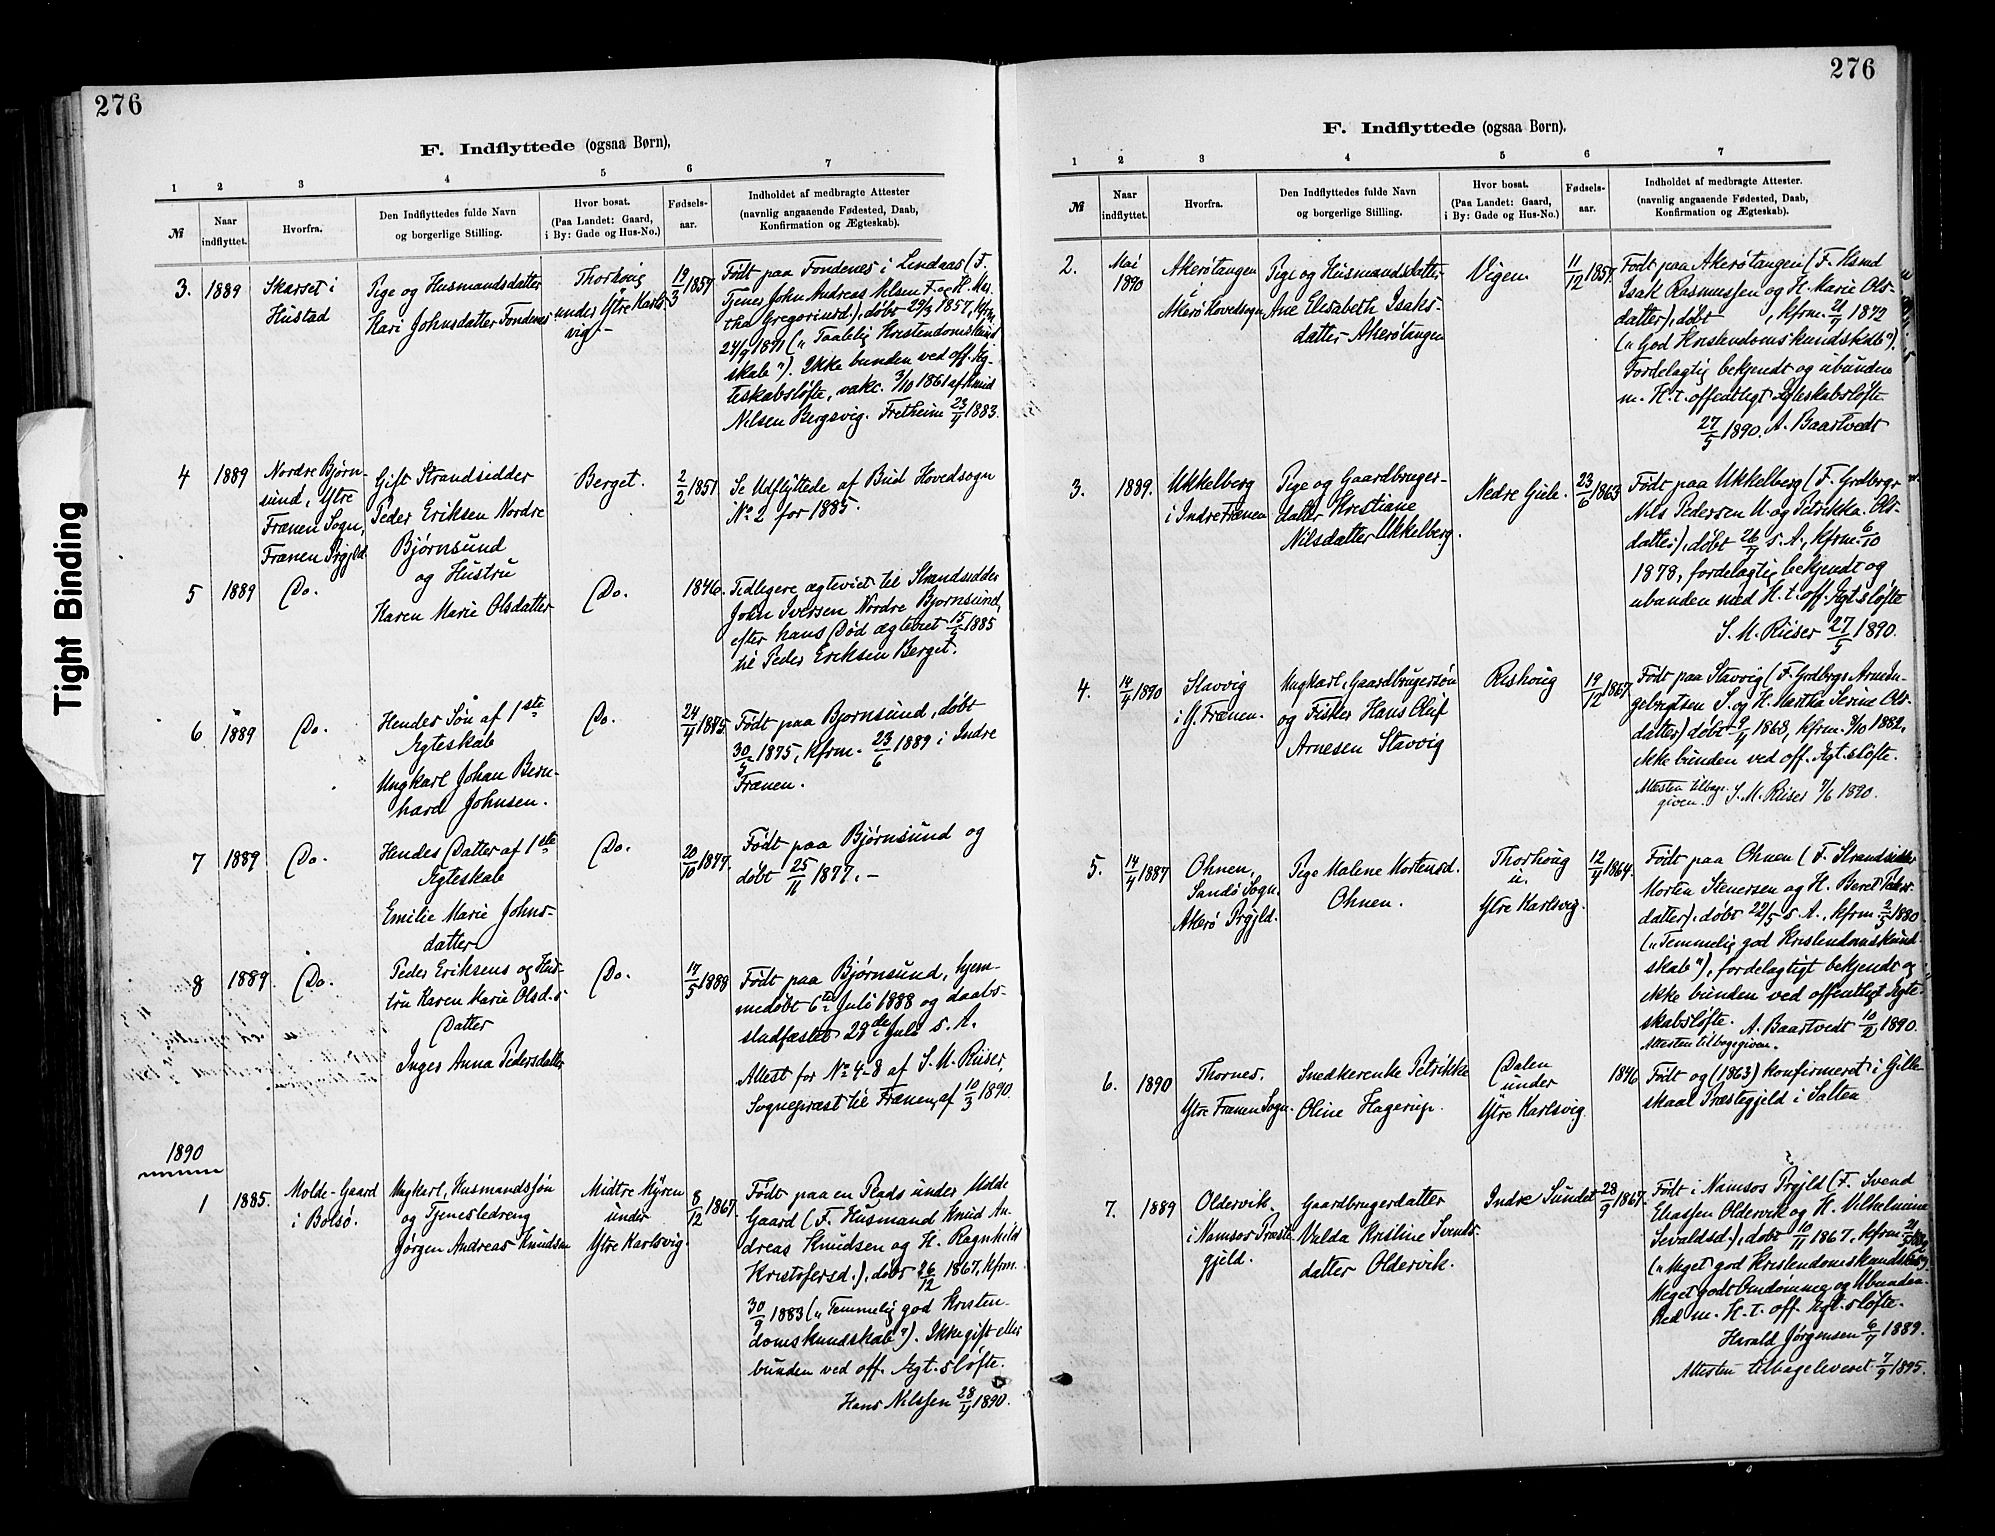 276
F. Indflyttede (ogsaa Børn),
1 2 3 4 5 6 7
№
Naar indflyttet.
Hvorfra.
Den Indflyttedes fulde Navn
og borgerlige Stilling.
Hvor bosat.
(Paa Landet: Gaard,
i By: Gade og Hus-No.)
Fødsels-
aar.
Indholdet af medbragte Attester
(navnlig angaaende Fødested, Daab,
Konfirmation og Ægteskab).
3. 1889
Skarset i
Hustad
Pige og Husmandsdatter
Kari Johnsdatter Fondenes
Thorhoug
under Ytre Karls-
vig
19/3 1857
Født paa Fondenes i Lindeas (F.
Tjener John Andreas Nilsen F. og H. Mar-
tha Gregoriusd.), døbt 29/3 1857, kfrm.
24/9 1871 („Taalelig Kristendomskund-
skab"). Ikke bunden ved off. Æg-
teskabsløfte, vakc. 3/10 1861 af Knud
Nilsen Bergsvig. Fretheim 23/4 1883.
4 1889
Nordre Bjørn-
sund, Ytre
Frænen Sogn,
Frænen Prgjld.
Gift Strandsidder
Peder Eriksen Nordre
Bjørnsund
og Hustru
Berget.
2/2 1851
Se Udflyttede af Bud Hovedsogn
No 2 for 1885.
5 1889 Do.
Karen Marie Olsdatter
Do.
1846.
Tidligere ægteviet til Strandsidder
John Iversen Nordre Bjørnsund,
efter hans Død ægteviet 15/9 1885
til Peder Eriksen Berget.
6 1889 Do.
Hendes Søn af 1ste
Ægteskab
Ungkarl Johan Bern-
hard Johnsen.
Do.
24/4 1875.
Født paa Bjørnsund, døbt
30/5 1875, kfrm. 23/6 1889 i Indre
Frænen.
7 1889 Do.
Hendes Datter af 1ste
Ægteskab
Emilie Marie Johns-
datter
Do.
20/10 1877.
Født paa Bjørnsund og
døbt 25/11 1877.-
8 1889. Do.
Peder Eriksens og Hus-
tru Karen Marie Olsd.s
Datter
Inger Anna Pedersdatter
Do.
17/5 1888
Født paa Bjørnsund, hjem-
medøbt 6te Juli 1888 og daabs-
stadfæstet 29de Juli s. A.
Attest for No 4-8 af S. M. Riiser,
Sognepræst til Frænen, af 10/3 1890.
1890
1 1885.
Molde-Gaard
i Bolsø.
Ungkarl, Husmandssøn
og Tjenestedreng
Jørgen Andreas Knudsen
Midtre Myren
under
Ytre Karlsvig.
8/12 1867
Født paa en Plads under Molde
Gaard (F. Husmand Knud An-
dreas Knudsen og H. Ragnhild
Kristofersd.), døbt 26/12 1867, kfrm.
30/9 1883 („Temmelig god Kristen-
domskundskab"). Ikke gift eller
bunden ved off. Ægt.sløfte.
Hans Nilssen 28/4 1890.
276
F. Indflyttede (ogsaa Børn).
1 2 3 4 5 6 7
№
Naar
indflyttet.
Hvorfra.
Den Indflyttedes fulde Navn
og borgerlige Stilling.
Hvor bosat.
(Paa Landet: Gaard,
i By: Gade og Hus-No.)
Fødsels-
aar.
Indholdet af medbragte Attester.
(navnlig angaaende Fødested, Daab,
Konfirmation og Ægteskab).
2. Mai
1890
Akerøtangen
i
Akerø Hovedsogn
Pige og Husmandsdatter
Ane Elisabeth Isaks-
datter Akerøtangen
Vigen
11/12 1857.
Født paa Akerøtangen (F. Hsmd
Isak Rasmussen og H. Marie Ols-
datter), døbt , kfrm. 21/9 1872
(„God Kristendomskundskab").
Fordelagtig bekjendt og ubunden
m. H. t. offentligt Ægteskabsløfte
27/5 1890. A. Baartvedt
3. 1889.
Ukkelberg
i Indre Frænen
Pige og Gaardbruger-
datter Kristiane
Nilsdatter Ukkelberg.
Nedre Gule.
23/6 1863
Født paa Ukkelberg (F. Grdbrgr
Nils Pedersen U. og Petrikka Ols-
datter), døbt 26/7 s. A., kfrm. 6/10
1878, fordelagtig bekjendt og
ubunden med H. t. off. Ægt.sløfte
S. M. Riiser 27/5 1890.
4. 14/4 1890
Stavvig
i Y. Frænen.
Ungkarl, Gaardbrugersøn
og Fisker Hans Oluf
Arnesen Stavvig
Rishoug
19/12 1867.
Født paa Stavvig (F. Grdbrgr Arne In-
gebrigtsen S. og H. Martha Serine Ols-
datter) døbt 9/4 1868, kfrm. 8/10 1882,
ikke bunden ved off. Ægt.sløfte.
Attesten tilbage-
given. S. M. Riiser 7/6 1890.
5. 14/4 1887
Ohnen,
Sandø Sogn,
Akerø Prgjld.
Pige Malene Mortensd.
Ohnen.
Thorhoug
u.
Ytre Karlsvig.
12/4 1864.
Født paa Ohnen (F. Strandsidder
Morten Stenersen og H. Beret Peders-
datter), døbt 22/5 s. A., kfrm. 2/5 1880
(„Temmelig god Kristendomskund-
skab"), fordelagtigt bekjendt og
ikke bunden ved offentligt Ægte-
skabsløfte. A. Baartvedt 10/2 1890.
Attesten tilbagegiven.
6. 1890
Thornes.
Ytre Frænen Sogn.
Snedkerenke Petrikke
Oline Hagerup.
Dalen
under
Ytre Karlsvig.
1846
Født og (1863) konfirmeret i Gille-
skaal Præstegjeld i Salten
7. 1889
Oldervik.
i Namsos Præste-
gjeld.
Gaardbrugerdatter
Valda Kristine Svends-
datter Oldervik.
Indre Sundet
28/9 1867.
Født i Namsos Prgjld (F. Svend
Eliassen Oldervik og H. Vilhelmine
Sevaldsd.), døbt 10/11 1867, kfrm.
(„Meget god Kristendomskundskab").
Meget godt Omdømme, og Ubunden-
hed m. H. t. off. Ægt.sløfte.
Harald Jørgensen 6/7 1889.
Attesten tilbageleveret 7/9 1895.
Tight Binding